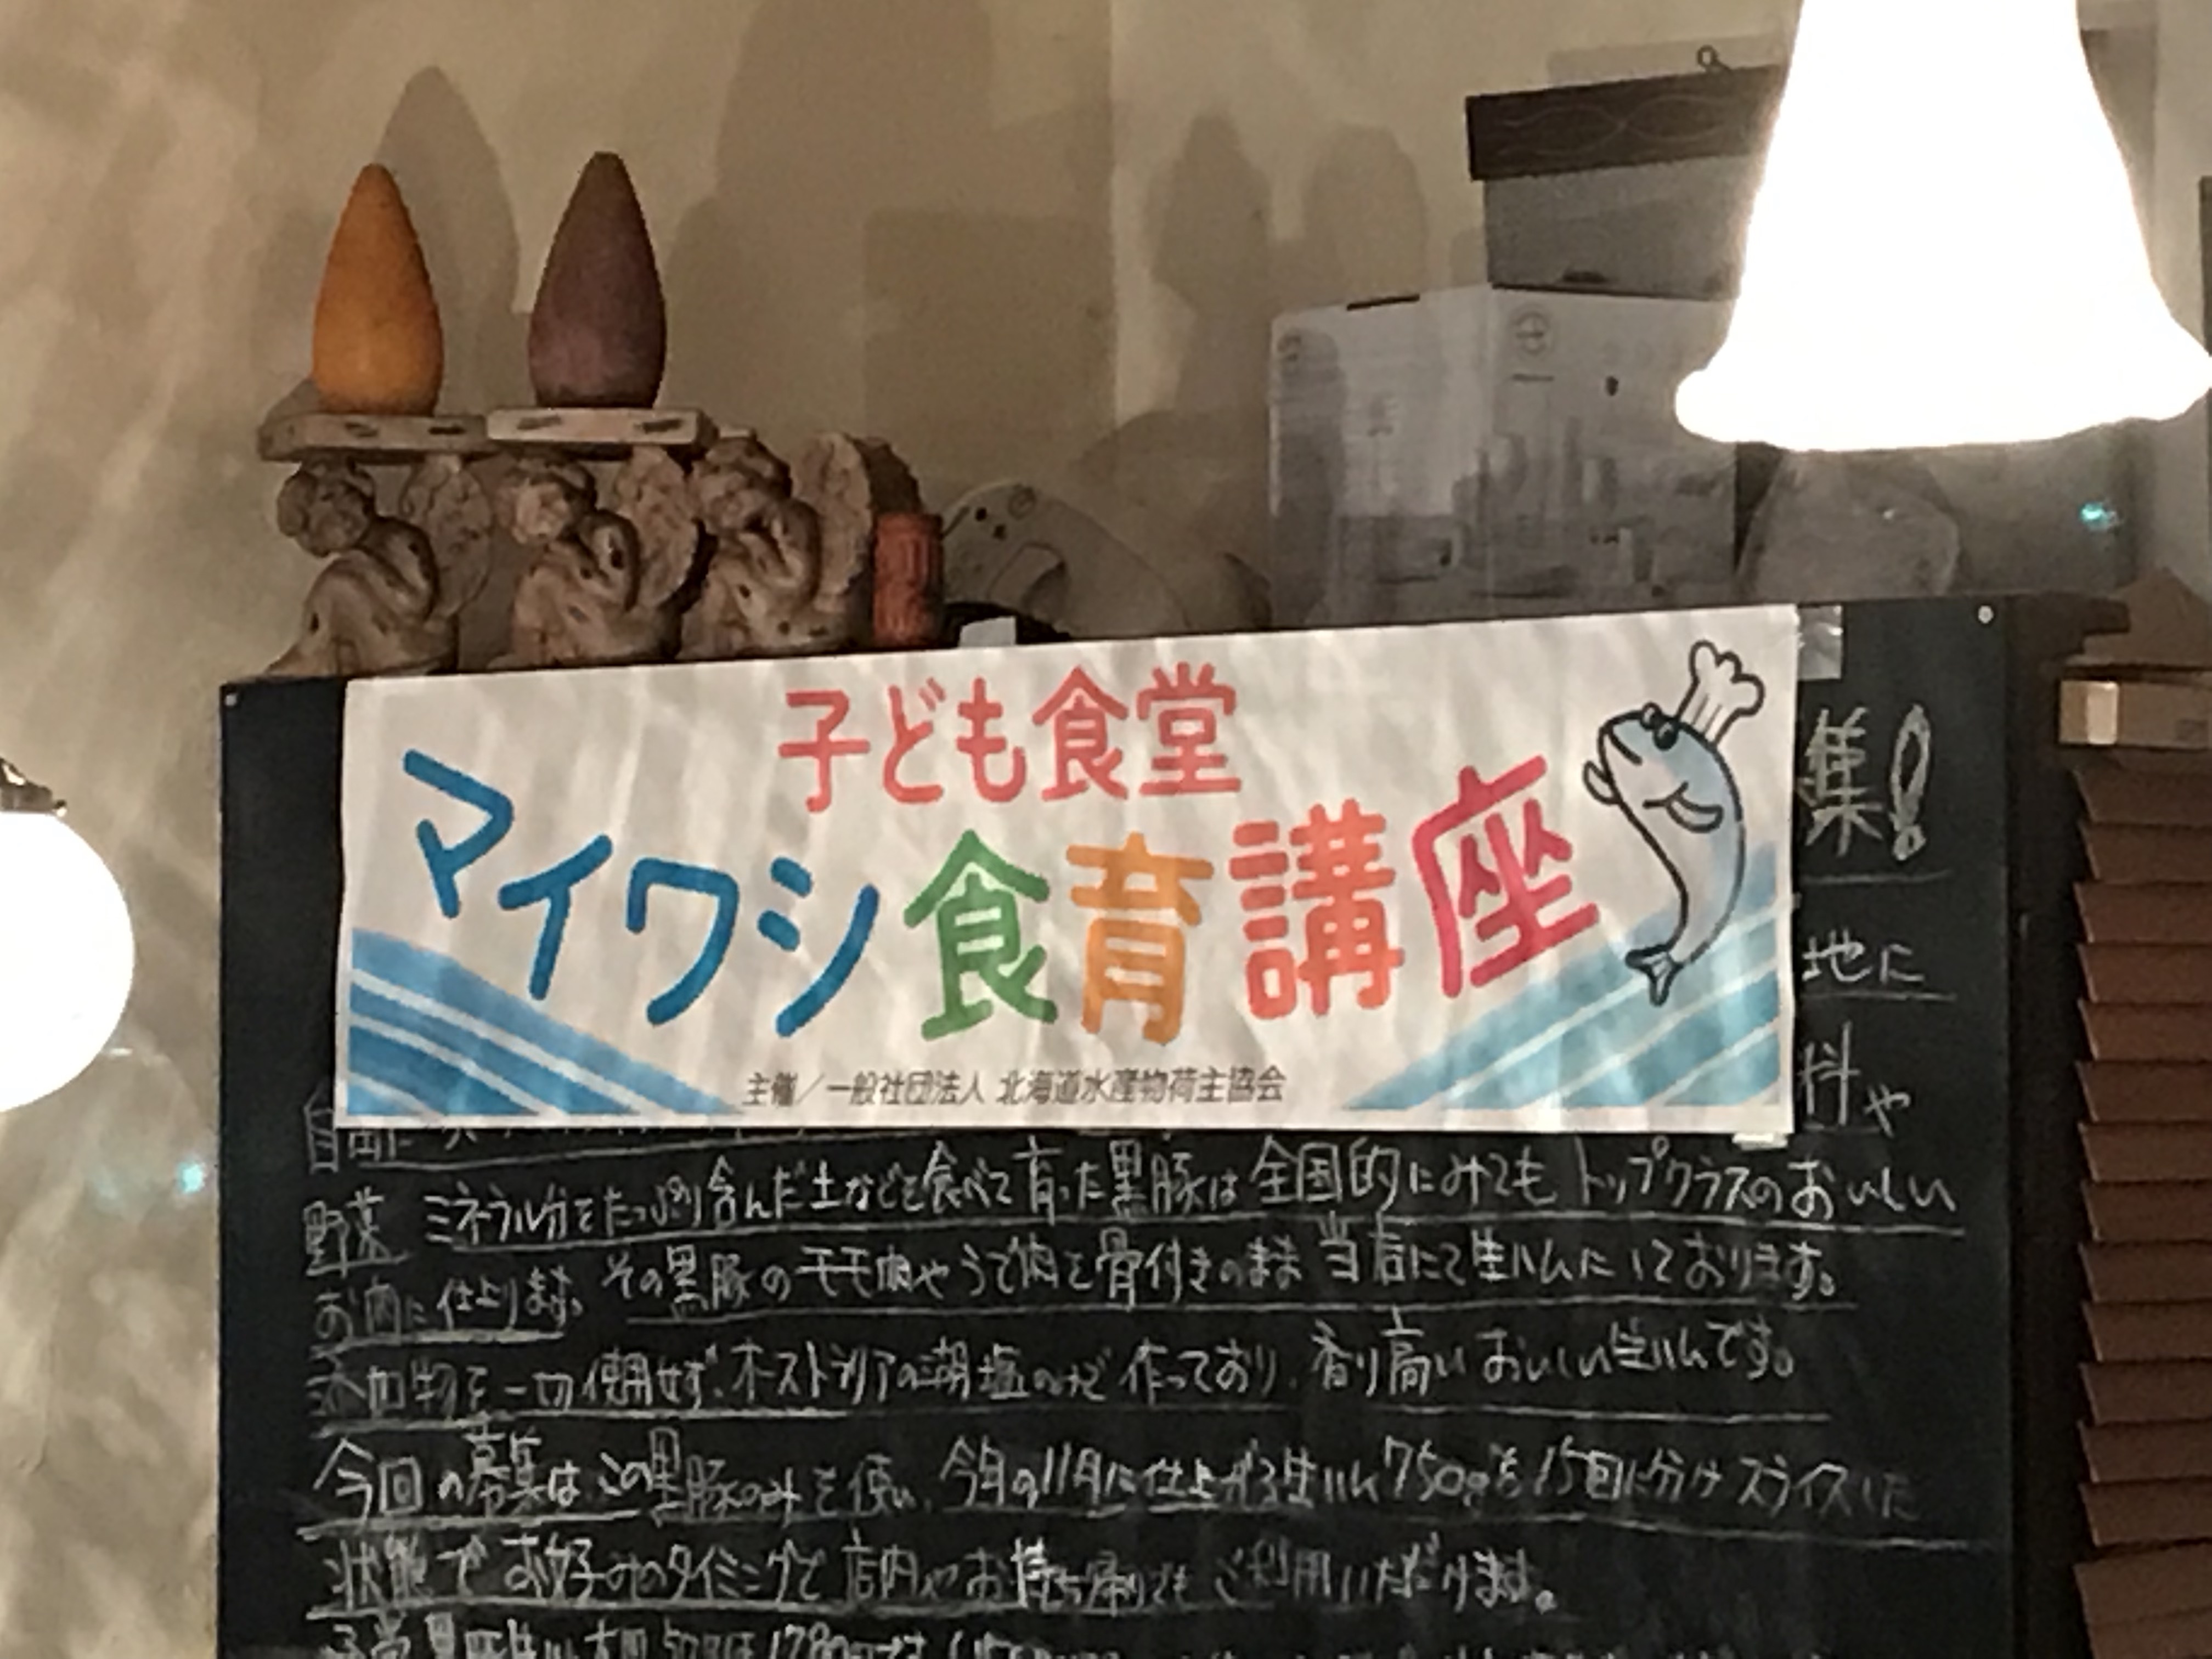 子ども食堂
マイワシ食育講座
主催／一般社団法人 北海道水産物荷主協会
集!
地に
料や
野菜 ミネラル分をたっぷり含んだ土などを食べて育った黒豚は全国的にみてもトップクラスのおいしい
お肉に仕上ります。その黒豚のモモ肉やうで肉を骨付きのまま当店にて生ハムにしております。
添加物を一切使用せず、オーストラリアの湖塩のみで作っており、香り高いおいしい生ハムです。
今回の募集はこの黒豚のみを使い、今年の11月に仕上がる生ハム750gを15回に分けスライスした
状態でお好みのタイミングで店内やお持ち帰りでもご利用いただけます。